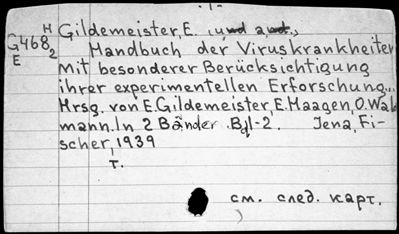 - 1 -
H Gildemeister, E. und and.,
G468₂ Handbuch der Viruskrankheiten
E mit besonderer Berücksichtigung
ihrer experimentellen Erforschung...
Hrsg. von E.Gildemeister, E.Haagen, O.Wald-
mann. In 2 Bänder. Bd1-2. Jena, Fi-
scher, 1939
T.
см. след. карт.